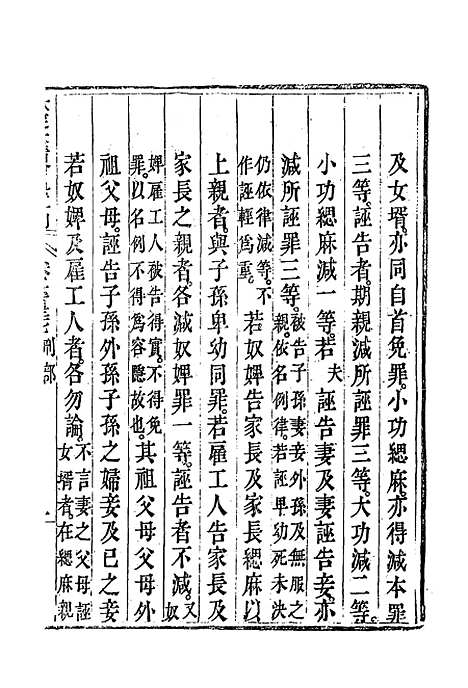 及女壻。亦同自首免罪。小功緦麻。亦得減本罪
三等。誣告者。期親減所誣罪三等。大功減二等。
小功緦麻減一等。若夫誣告妻及妻誣告妾。亦
減所誣罪三等。被告子孫妻妾外孫及無服之親。依名例律。若誣卑幼死未決
仍依律減等。不作誣輕爲重。若奴婢告家長及家長緦麻以
上親者。與子孫卑幼同罪。若雇工人告家長及
家長之親者。各減奴婢罪一等。誣告者不減。又奴
婢雇工人被告得實。不得免罪。以名例不得爲容隱故也。其祖父母父母外
祖父母。誣告子孫外孫子孫之婦妾及已之妾
若奴婢及雇工人者。各勿論。不言妻之父母誣女壻者。在緦麻親
刑部